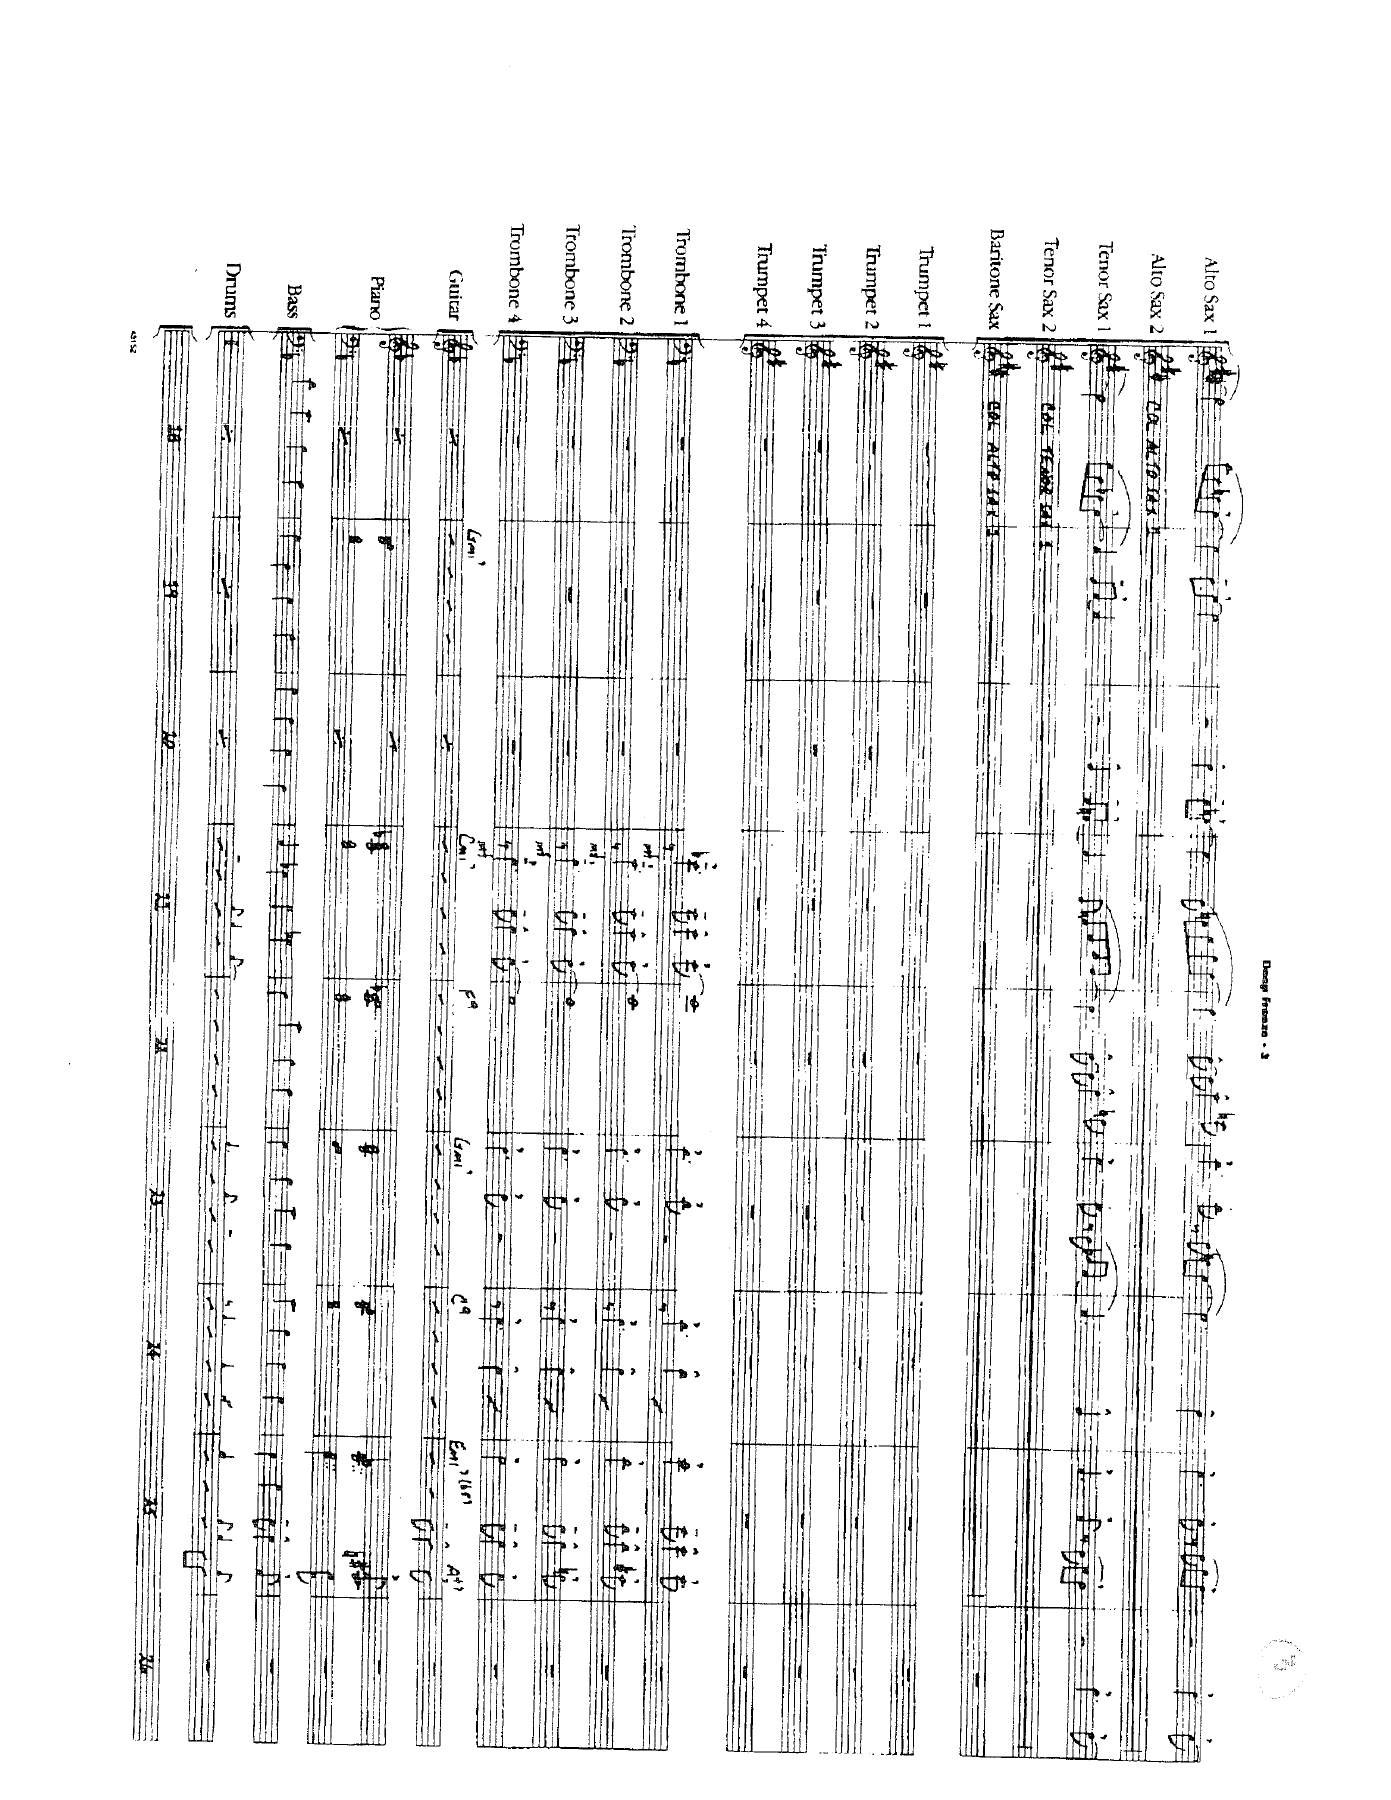 Deep Freeze - 3
3
Alto Sax 1
Alto Sax 2
COL ALTO SAX 1
Tenor Sax 1
Tenor Sax 2
COL TENOR SAX 1
Baritone Sax
COL ALTO SAX 1
Trumpet 1
Trumpet 2
Trumpet 3
Trumpet 4
Trombone 1
mf
Trombone 2
mf
Trombone 3
mf
Trombone 4
mf
Gmi7 Cmi7 F9 Gmi7 C9 Emi7(b5) A+7
Guitar
Piano
Bass
Drums
18 19 20 21 22 23 24 25 26